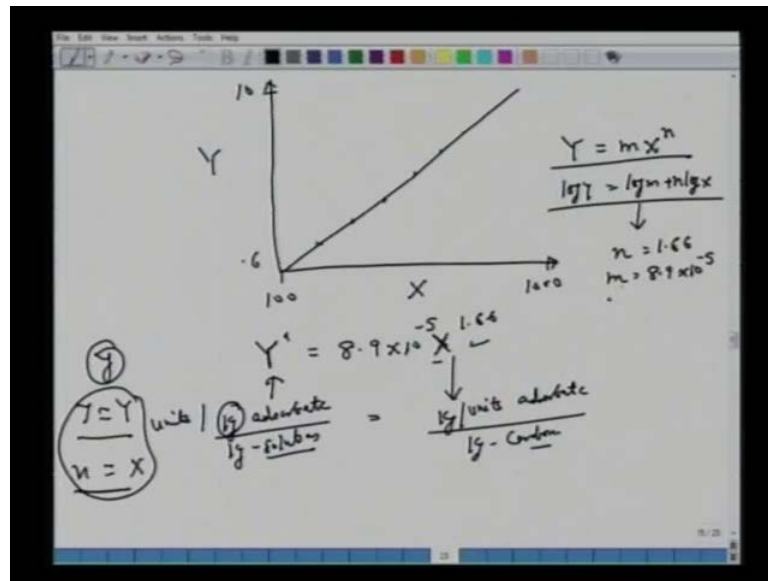 File Edit View Insert Actions Tools Help
10
Y
.6
100
X
1000
Y = m X^n
log Y = log m + n log X
n = 1.66
m = 8.9 x 10^-5
Y* = 8.9 x 10^-5 X^1.66
y
y = Y
x = X
units / kg adsorbate
kg - solution
=
kg / units adsorbate
kg - Carbon